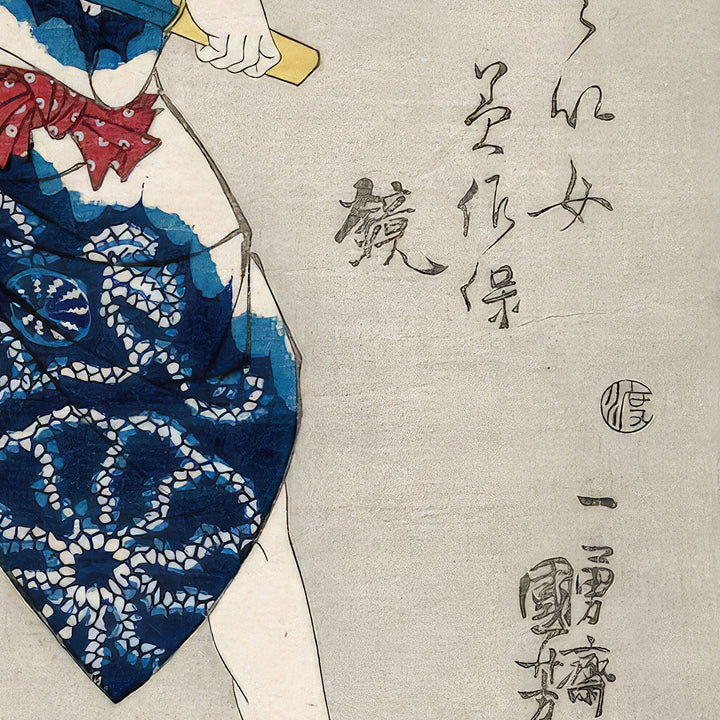 女
作保
鏡
渡
一勇齋
國芳